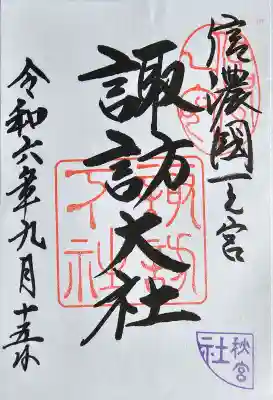 信濃國一之宮
諏訪大社
令和六年九月十五日
秋宮
社